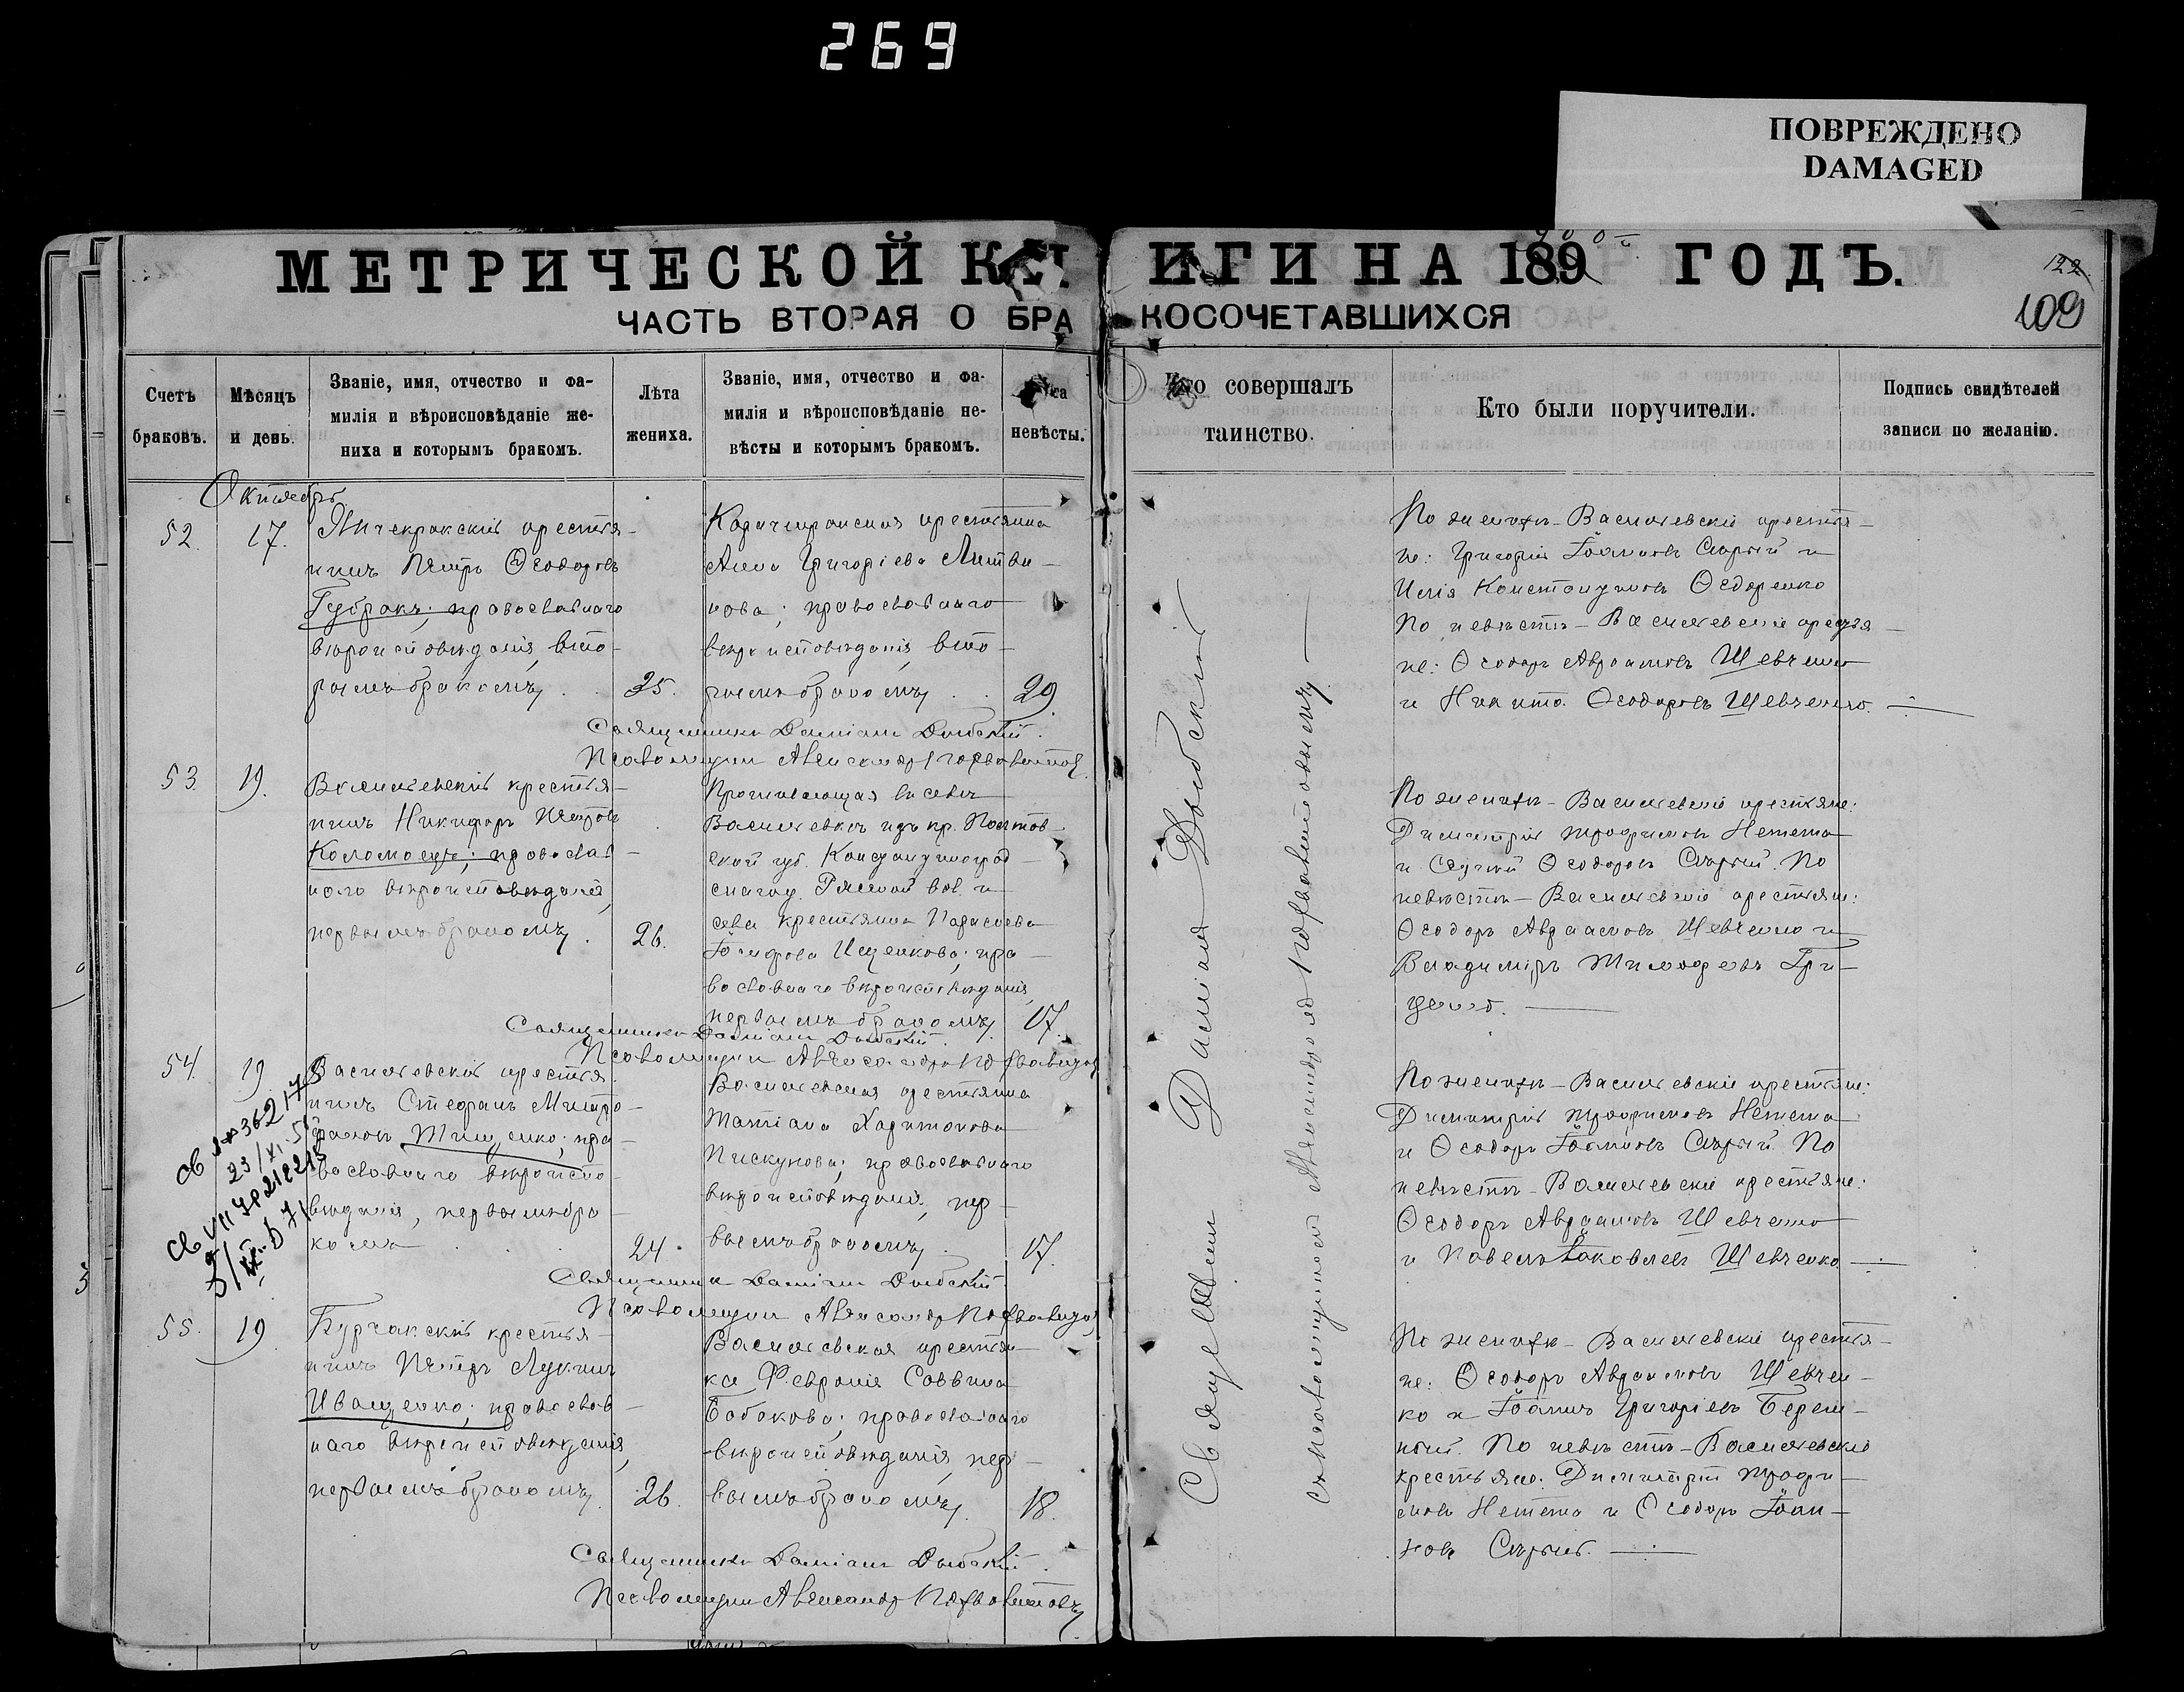 269
ПОВРЕЖДЕНО
DAMAGED
МЕТРИЧЕСКОЙ КН
ИГИ НА 189 ГОДЪ.
900
122
109
ЧАСТЬ ВТОРАЯ О БРА
КОСОЧЕТАВШИХСЯ
Счетъ
браковъ.
Мѣсяцъ
и день.
Званіе, имя, отчество и фа-
милія и вѣроисповѣданіе же-
ниха и которымъ бракомъ.
Лѣта
жениха.
Званіе, имя, отчество и фа-
милія и вѣроисповѣданіе не-
вѣсты и которымъ бракомъ.
невѣсты.
Кто совершалъ
таинство.
Кто были поручители.
Подпись свидѣтелей
записи по желанію.
Октябрь
52.
17.
крестья-
нинъ Петръ Ѳеодоровъ
Губракъ; православнаго
вѣроисповѣданія, вто-
рымъ бракомъ.
25.
крестьянка
Анна Григоріева Литви-
нова; православнаго
вѣроисповѣданія, вто-
рымъ бракомъ.
29.
Священникъ Даміанъ
Псаломщикъ Александръ
По женихѣ - Васильевскіе крестья-
не: Григорій Іоанновъ Сѣрый и
Илія Константиновъ Ѳедоренко
По невѣстѣ - Васильевскіе крестья-
не: Ѳеодоръ Авраамовъ Шевченко
и Никита Ѳеодоровъ Шевченко.
53.
19.
Васильевскій крестья-
нинъ Никифоръ Петровъ
Коломоецъ; православ-
наго вѣроисповѣданія,
первымъ бракомъ.
26.
Проживающая въ селѣ
Васильевкѣ изъ кр. Полтав-
ской губ. Константиноград-
скаго у. вол. и
села крестьянка Параскева
Ищенкова; пра-
вославнаго вѣроисповѣданія,
первымъ бракомъ.
17.
Священникъ Даміанъ
Псаломщикъ Александръ
По женихѣ - Васильевскіе крестьяне:
Димитрій Трофимовъ Нетета
и Ѳеодоровъ Сѣрый. По
невѣстѣ - Васильевскіе крестьяне:
Ѳеодоръ Авраамовъ Шевченко и
Владиміръ Тимоѳеевъ Гри-
54.
19.
Васильевскій крестья-
нинъ Стефанъ Митро-
фановъ Тищенко; пра-
вославнаго вѣроиспо-
вѣданія, первымъ бра-
комъ
24.
Васильевская крестьянка
Татіана Харитонова
Пискунова; православнаго
вѣроисповѣданія, пер-
вымъ бракомъ.
17.
Священникъ Даміанъ
Псаломщикъ Александръ
По женихѣ - Васильевскіе крестьяне:
Димитрій Трофимовъ Нетета
и Ѳеодоръ Іоанновъ Сѣрый. По
невѣстѣ - Васильевскіе крестьяне:
Ѳеодоръ Авраамовъ Шевченко
и Павелъ Іаковлевъ Шевченко
55.
19
Бурчакскій крестья-
нинъ Петръ Лукинъ
Иващенко; православ-
наго вѣроисповѣданія,
первымъ бракомъ.
26.
Васильевская крестьян-
ка Февронія Саввина
Бабакова; православнаго
вѣроисповѣданія, пер-
вымъ бракомъ.
18.
Священникъ Даміанъ
Псаломщикъ Александръ
По женихѣ - Васильевскіе крестья-
не: Ѳеодоръ Авраамовъ Шевчен-
ко и Іоаннъ Григоріевъ Береж-
ный. По невѣстѣ - Васильевскіе
крестьяне: Димитрій Трофи-
мовъ Нетета и Ѳеодоръ Іоан-
новъ Сѣрый.
Священникъ Даміанъ
съ псаломщикомъ Александромъ